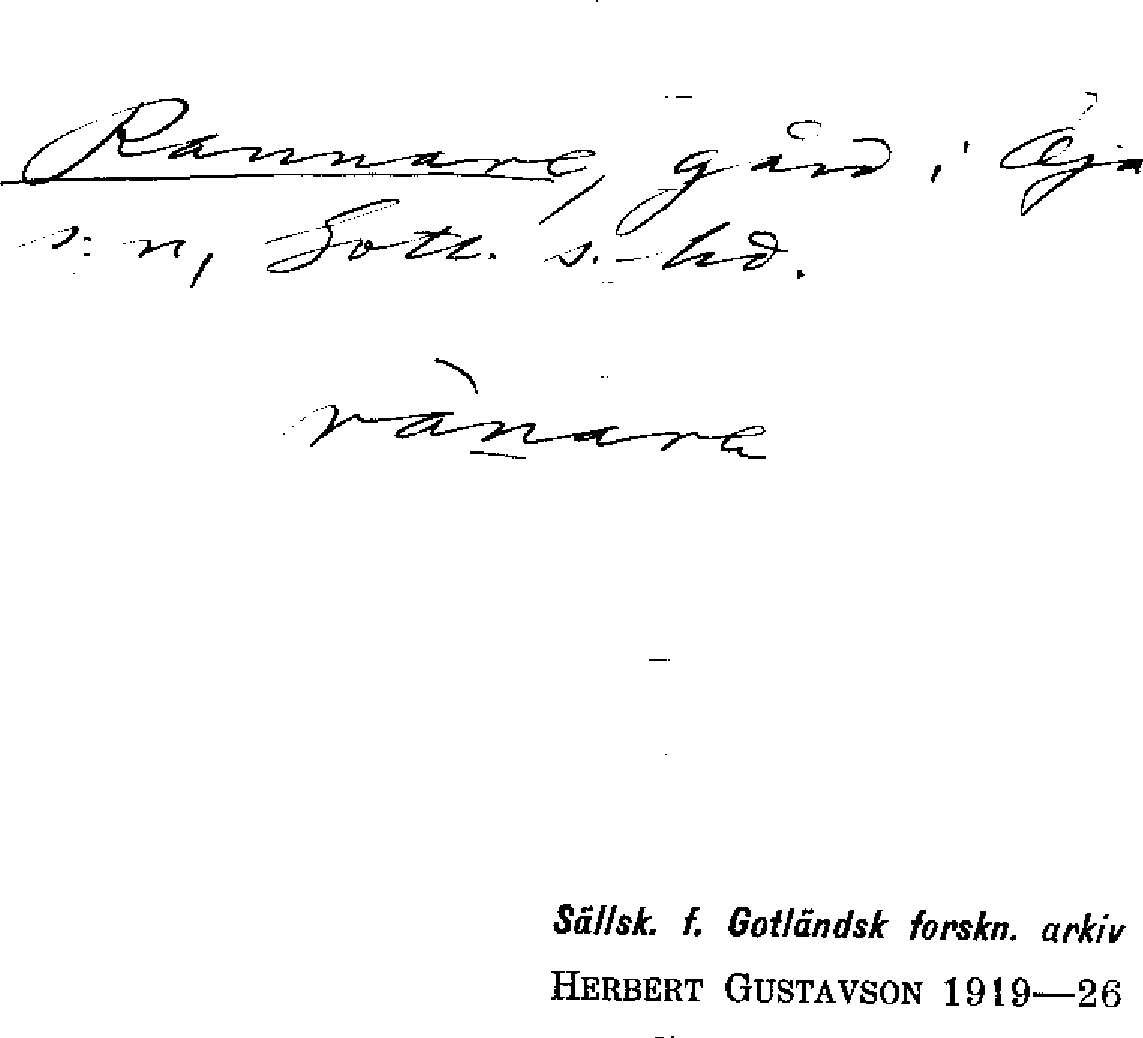 Rannare, gård i Öja
s:n, Gotl. s.-hd.
rànare
Sällsk. f. Gotländsk forskn. arkiv
HERBERT GUSTAVSON 1919—26